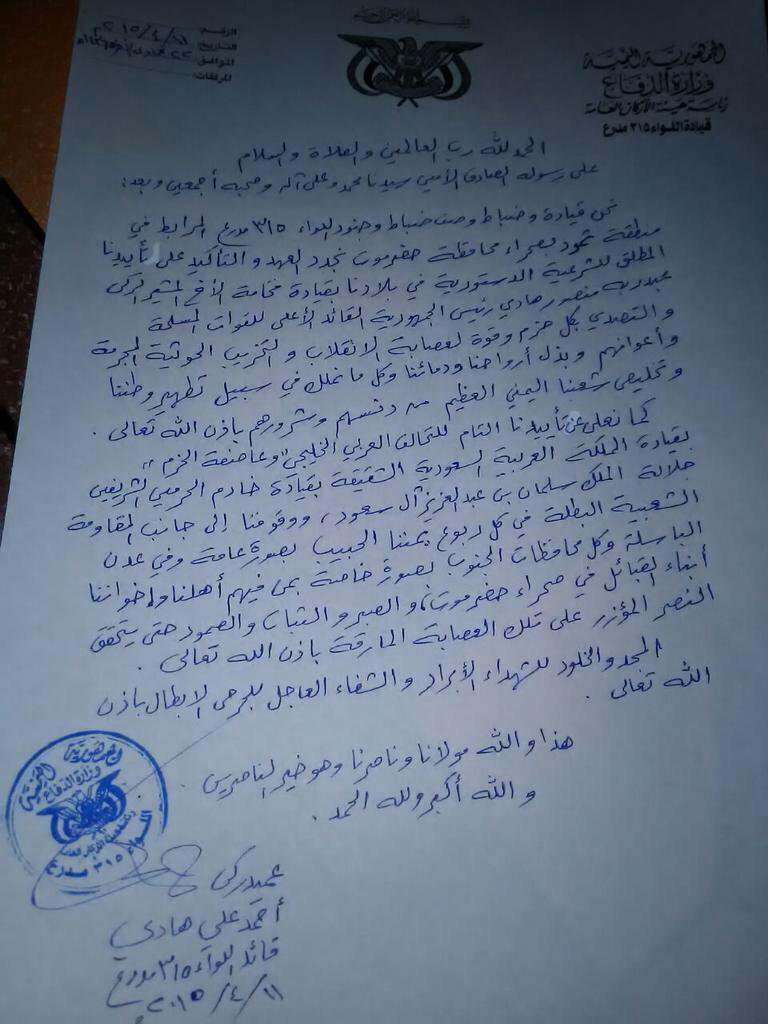 بسم الله الرحمن الرحيم
الجمهورية اليمنية
وزارة الدفاع
رئاسة هيئة الأركان العامة
قيادة اللواء ٣١٥ مدرع
الرقم:
التاريخ: ٢٠١٥/٤/١١م
الموافق: ٢٢ جمادى الآخر
المرفقات:
الحمد لله رب العالمين والصلاة والسلام
على رسوله الصادق الأمين سيدنا محمد وعلى آله وصحبه أجمعين وبعد:
نحن قيادة وضباط وصف ضباط وجنود اللواء ٣١٥ مدرع المرابط في
منطقة ثمود بصحراء محافظة حضرموت نجدد العهد والتأكيد على تأييدنا
المطلق للشرعية الدستورية في بلادنا بقيادة فخامة الأخ المشير الركن
عبدربه منصور هادي رئيس الجمهورية القائد الأعلى للقوات المسلحة
والتصدي بكل حزم وقوة لعصابة الانقلاب والتخريب الحوثية المجرمة
وأعوانهم وبذل أرواحنا ودمائنا وكل ما نملك في سبيل تطهير وطننا
وتخليص شعبنا اليمني العظيم من دنسهم وشرورهم بإذن الله تعالى.
كما نعلن عن تأييدنا التام للتحالف العربي الخليجي "وعاصفة الحزم"
بقيادة المملكة العربية السعودية الشقيقة بقيادة خادم الحرمين الشريفين
جلالة الملك سلمان بن عبدالعزيز آل سعود، ووقوفنا إلى جانب المقاومة
الشعبية البطلة في كل ربوع يمننا الحبيب بصورة عامة وفي عدن
الباسلة وكل محافظات الجنوب بصورة خاصة بمن فيهم أهلنا وإخواننا
أبناء القبائل في صحراء حضرموت، والصبر والثبات والصمود حتى يتحقق
النصر المؤزر على تلك العصابة المارقة بإذن الله تعالى.
المجد والخلود للشهداء الأبرار والشفاء العاجل للجرحى الابطال باذن
الله تعالى.
هذا والله مولانا وناصرنا وهو خير الناصرين.
والله أكبر ولله الحمد.
الجمهورية اليمنية
وزارة الدفاع
اللواء ٣١٥ مدرع
عميد ركن
أحمد علي هادي
قائد اللواء ٣١٥ مدرع
٢٠١٥/٤/١١م